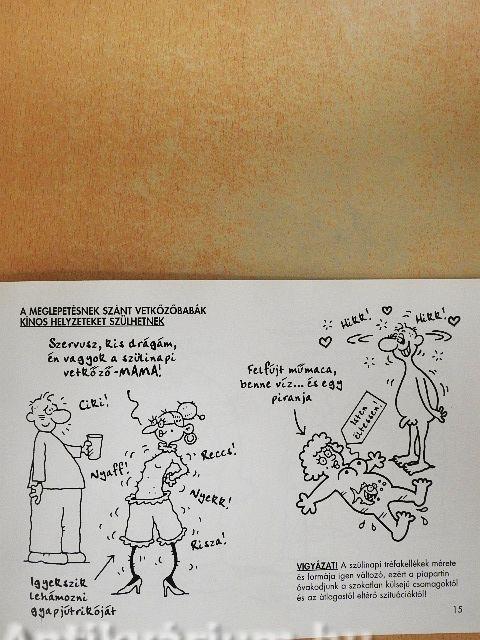 A MEGLEPETÉSNEK SZÁNT VETKŐZŐBABÁK
KÍNOS HELYZETEKET SZÜLHETNEK
Szervusz, kis drágám,
én vagyok a szülinapi
vetkőző-MAMA!
Ciki!
Nyaff!
Reccs!
Nyekk!
Risza!
Igyekszik
lehámozni
gyapjútrikóját
Hikk!
Hikk!
Felfújt műmaca,
benne víz... és egy
piranja
Isten
éltessen!
VIGYÁZAT! A szülinapi tréfakellékek mérete
és formája igen változó, ezért a piapartin
óvakodjunk a szokatlan külsejű csomagoktól
és az átlagostól eltérő szituációktól!
15
Antikvarium.hu